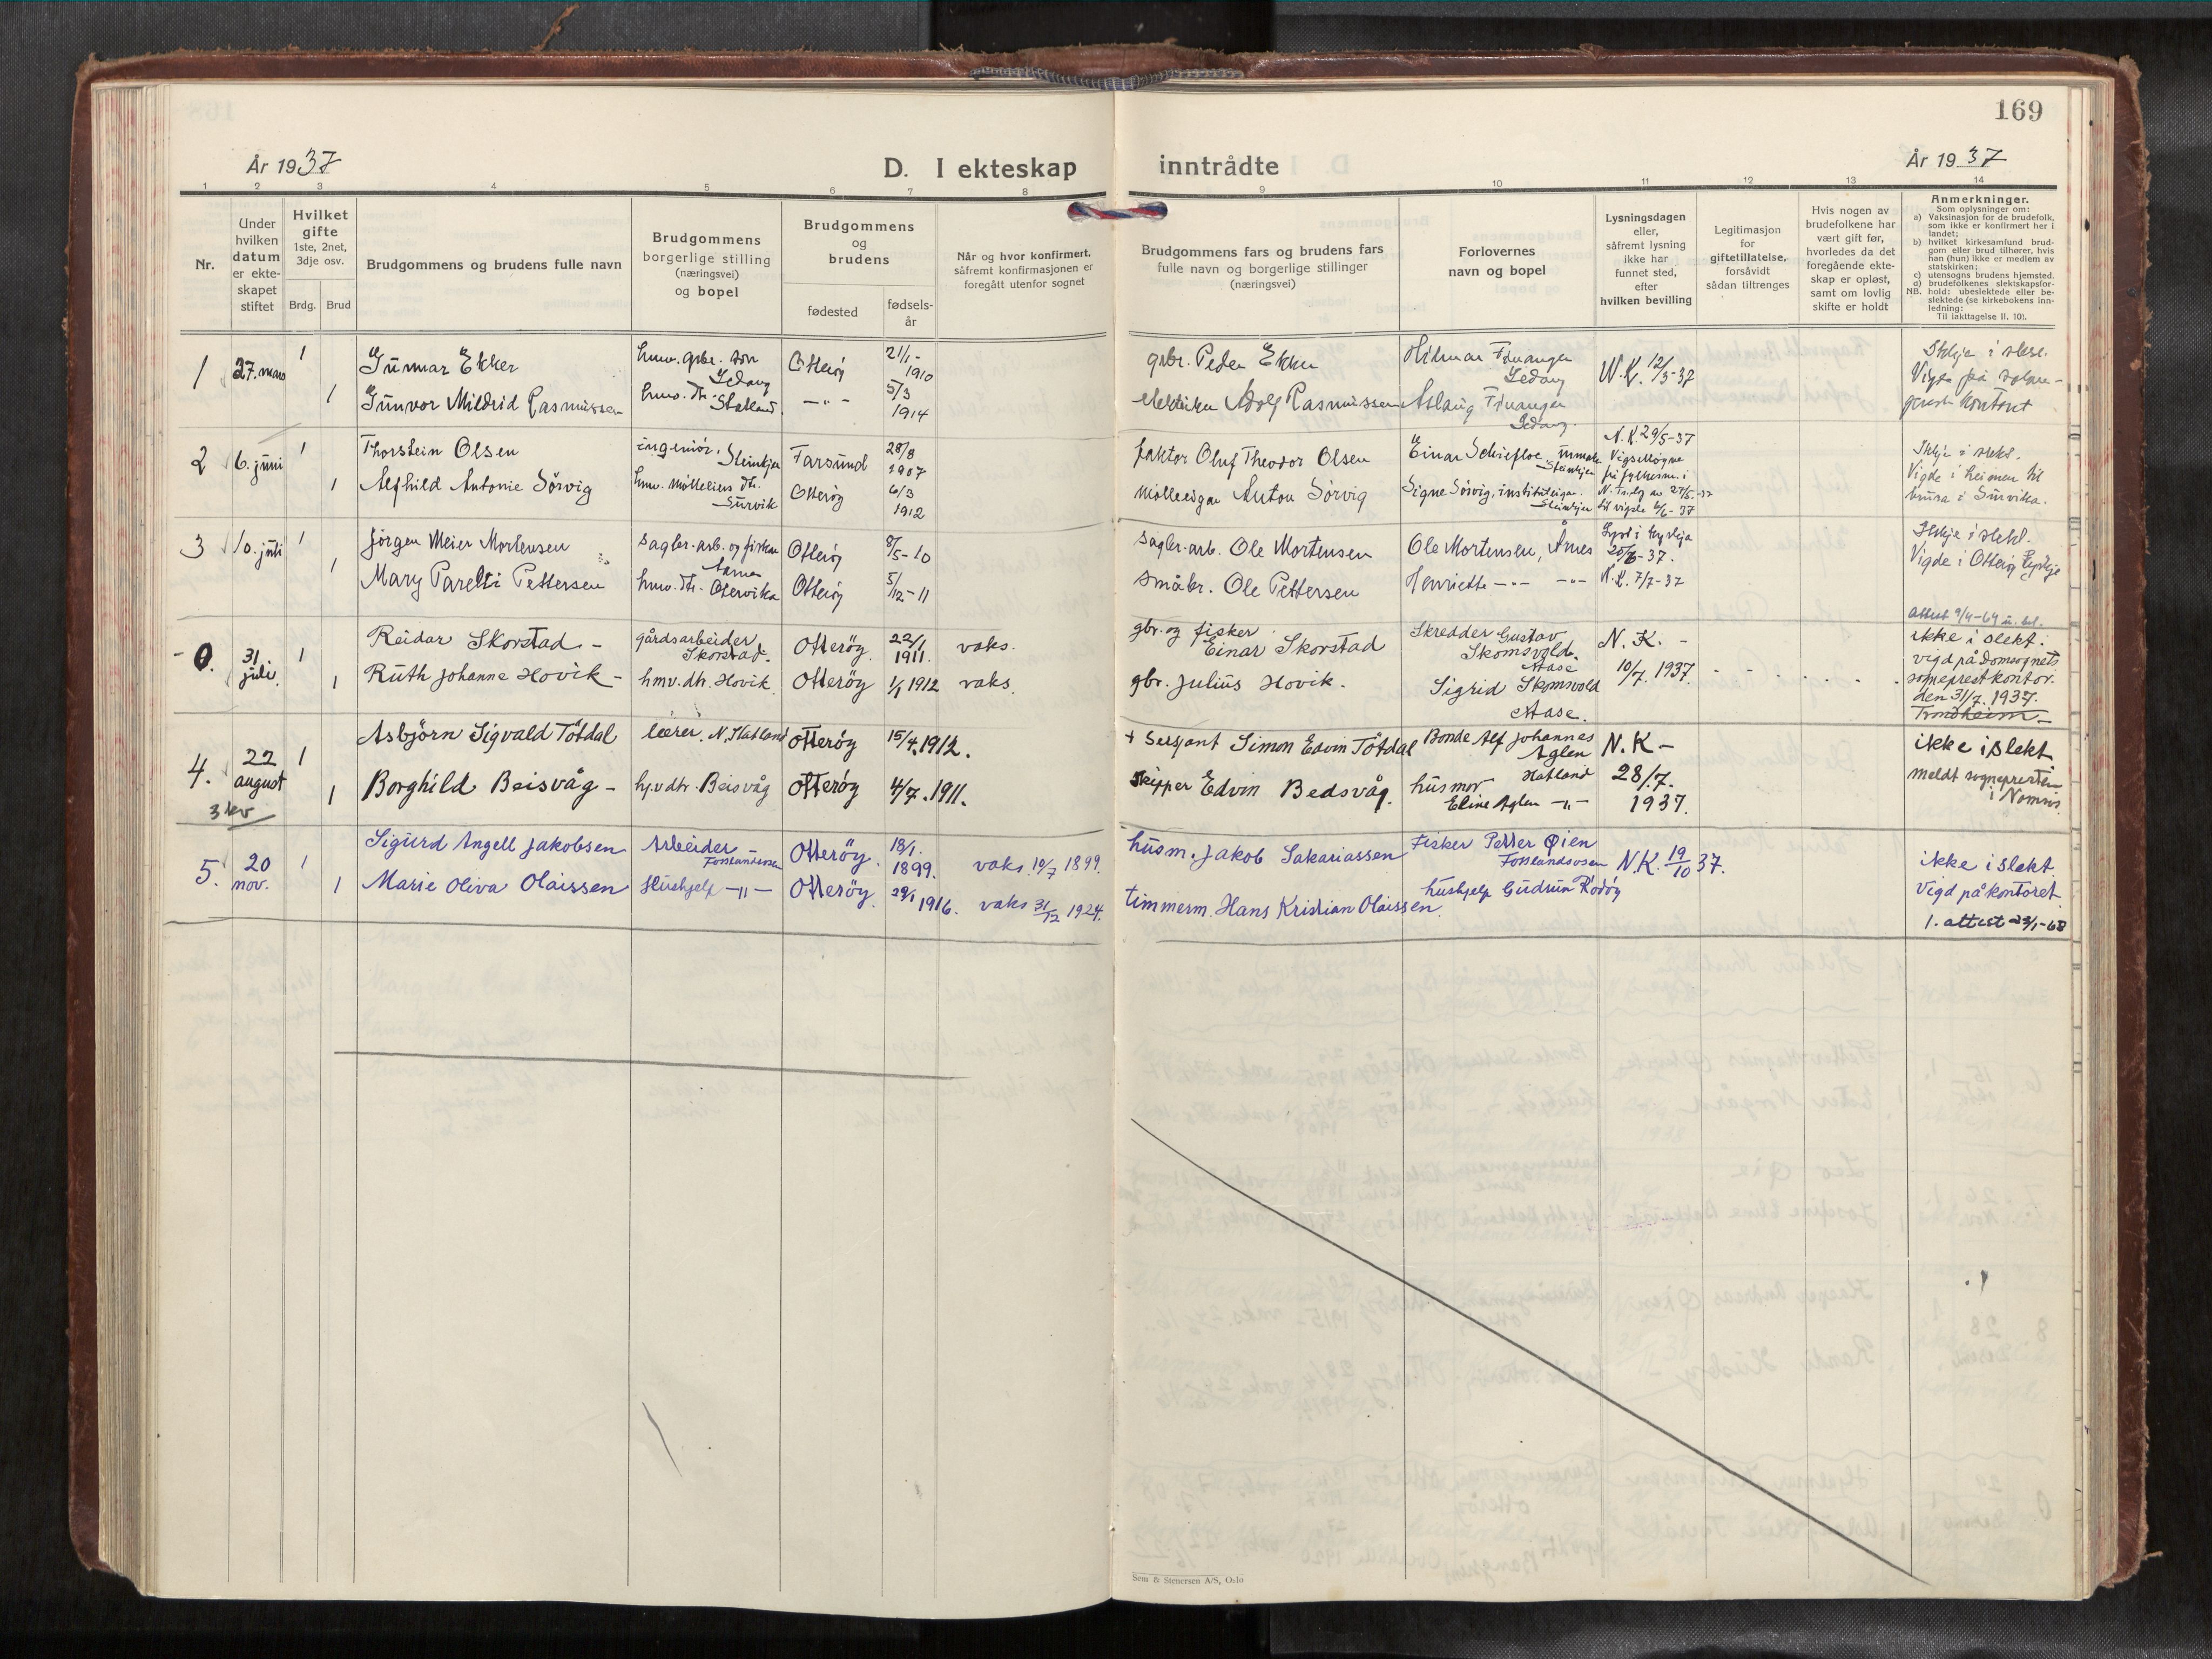 169
År 1937
D. I ekteskap
inntrådte
År 1937
1 2 3 4 5 6 7 8 9 10 11 12 13 14
Nr.
Under
hvilken
datum
er ekte-
skapet
stiftet
Hvilket
gifte
1ste, 2net,
3dje osv.
Brdg. Brud
Brudgommens og brudens fulle navn
Brudgommens
borgerlige stilling
(næringsvei)
og bopel
Brudgommens
og
brudens
fødested
fødsels-
år
Når og hvor konfirmert,
såfremt konfirmasjonen er
foregått utenfor sognet
Brudgommens fars og brudens fars
fulle navn og borgerlige stillinger
(næringsvei)
Forlovernes
navn og bopel
Lysningsdagen
eller,
såfremt lysning
ikke har
funnet sted,
efter
hvilken bevilling
Legitimasjon
for
giftetillatelse,
forsåvidt
sådan tiltrenges
Hvis nogen av
brudefolkene har
vært gift før,
hvorledes da det
foregående ekte-
skap er opløst,
samt om lovlig
skifte er holdt
Anmerkninger.
Som oplysninger om:
a) Vaksinasjon for de brudefolk,
som ikke er konfirmert her i
landet;
b) hvilket kirkesamfund brud-
gom eller brud tilhører, hvis
han (hun) ikke er medlem av
statskirken;
c) utensogns brudens hjemsted.
d) brudefolkenes slektskapsfor-
NB. hold: ubeslektede eller be-
slektede (se kirkebokens inn-
ledning:
Til iakttagelse II. 10).
1 27. mars 1
Gunnar Ekker
gbr. son
Otterøy
21/1-
1910
gbr. Peder Ekker
Hilmar
N.K. 12/3-37
Ikkje i slekt.
1 Gunvor Mildrid Rasmussen
hmv. dtr. Statland
-"-
5/3
1914
Adolf Rasmussen
Aslaug
Vigde på sokne-
prest kontoret
2 6. juni 1
Thorstein Olsen
ingeniör, Steinkjer
Farsund
28/8
1907
faktor Oluf Theodor Olsen
Einar Schiefloe,
Steinkjer
N.K. 29/5-37
Ikkje i slekt.
1 Alfhild Antonie Sörvig
Survik
Otterøy
6/3
1912
Mölleeigar Anton Sörvig
Signe Sörvig,
Steinkjer
Vigde i heimen til
brura i Survika.
3 10. juli 1
Jörgen Meier Mortensen
sagbr.-arb. og fiskar
Otterøy
8/5-10
sagbr.-arb. Ole Mortensen
Ole Mortensen, Årnes
20/6-37.
Ikkje i slekt.
1 Mary Parelli Pettersen
hmv. dtr. Otervika
Otterøy
5/12-11
småbr. Ole Pettersen
Henriette -"- -"-
N.K. 7/7-37
Vigde i Otterøy kyrkje
- 0. 31. juli 1
Reidar Skorstad -
gårdsarbeider
Skorstad.
Otterøy
22/1
1911.
vaks.
gbr. og fisker
Einar Skorstad
Skredder Gustav
Skomsvold.
Aase
N. K. -
10/7. 1937.
Attest 9/4-64
ikke i slekt.
vigd på Domsognets
sogneprestkontor.
den 31/7. 1937.
Trondheim
1 Ruth Johanne Hovik -
hmv. dtr. Hovik
Otterøy
1/1 1912
vaks.
gbr. Julius Hovik.
Sigrid Skomsvold
Aase.
4. 22 august 1
3 kv
Asbjörn Sigvald Tötdal
lærer. N. Statland
Otterøy
15/4. 1912.
+ Sersjant Simon Edvin Tötdal
Bonde Alf Johannes
Aglen
Hatland
N. K -
28/7.
1937.
ikke i slekt
meldt sognepresten
i Namsos
1 Borghild Beisvåg -
hjv. dtr. Beisvåg
Otterøy
4/7. 1911.
Skipper Edvin Bedsvåg.
husmor
Eline Aglen -"-
5. 20 nov. 1
Sigurd Angell Jakobsen
Arbeider -
Otterøy
18/1.
1899.
vaks. 10/7 1899.
husm. Jakob Sakariassen
Fisker Petter Øien
Fosslandsosen
N.K. 19/10 37.
ikke i slekt.
Vigd på kontoret
1. attest 23/1-68
1 Marie Oliva Olaissen
Hushjelp -"-
Otterøy.
29/1 1916.
vaks 31/12 1924.
timmerm. Hans Kristian Olaissen.
hushjelp Gudrun Rodøy
Sem & Stenersen A/S, Oslo